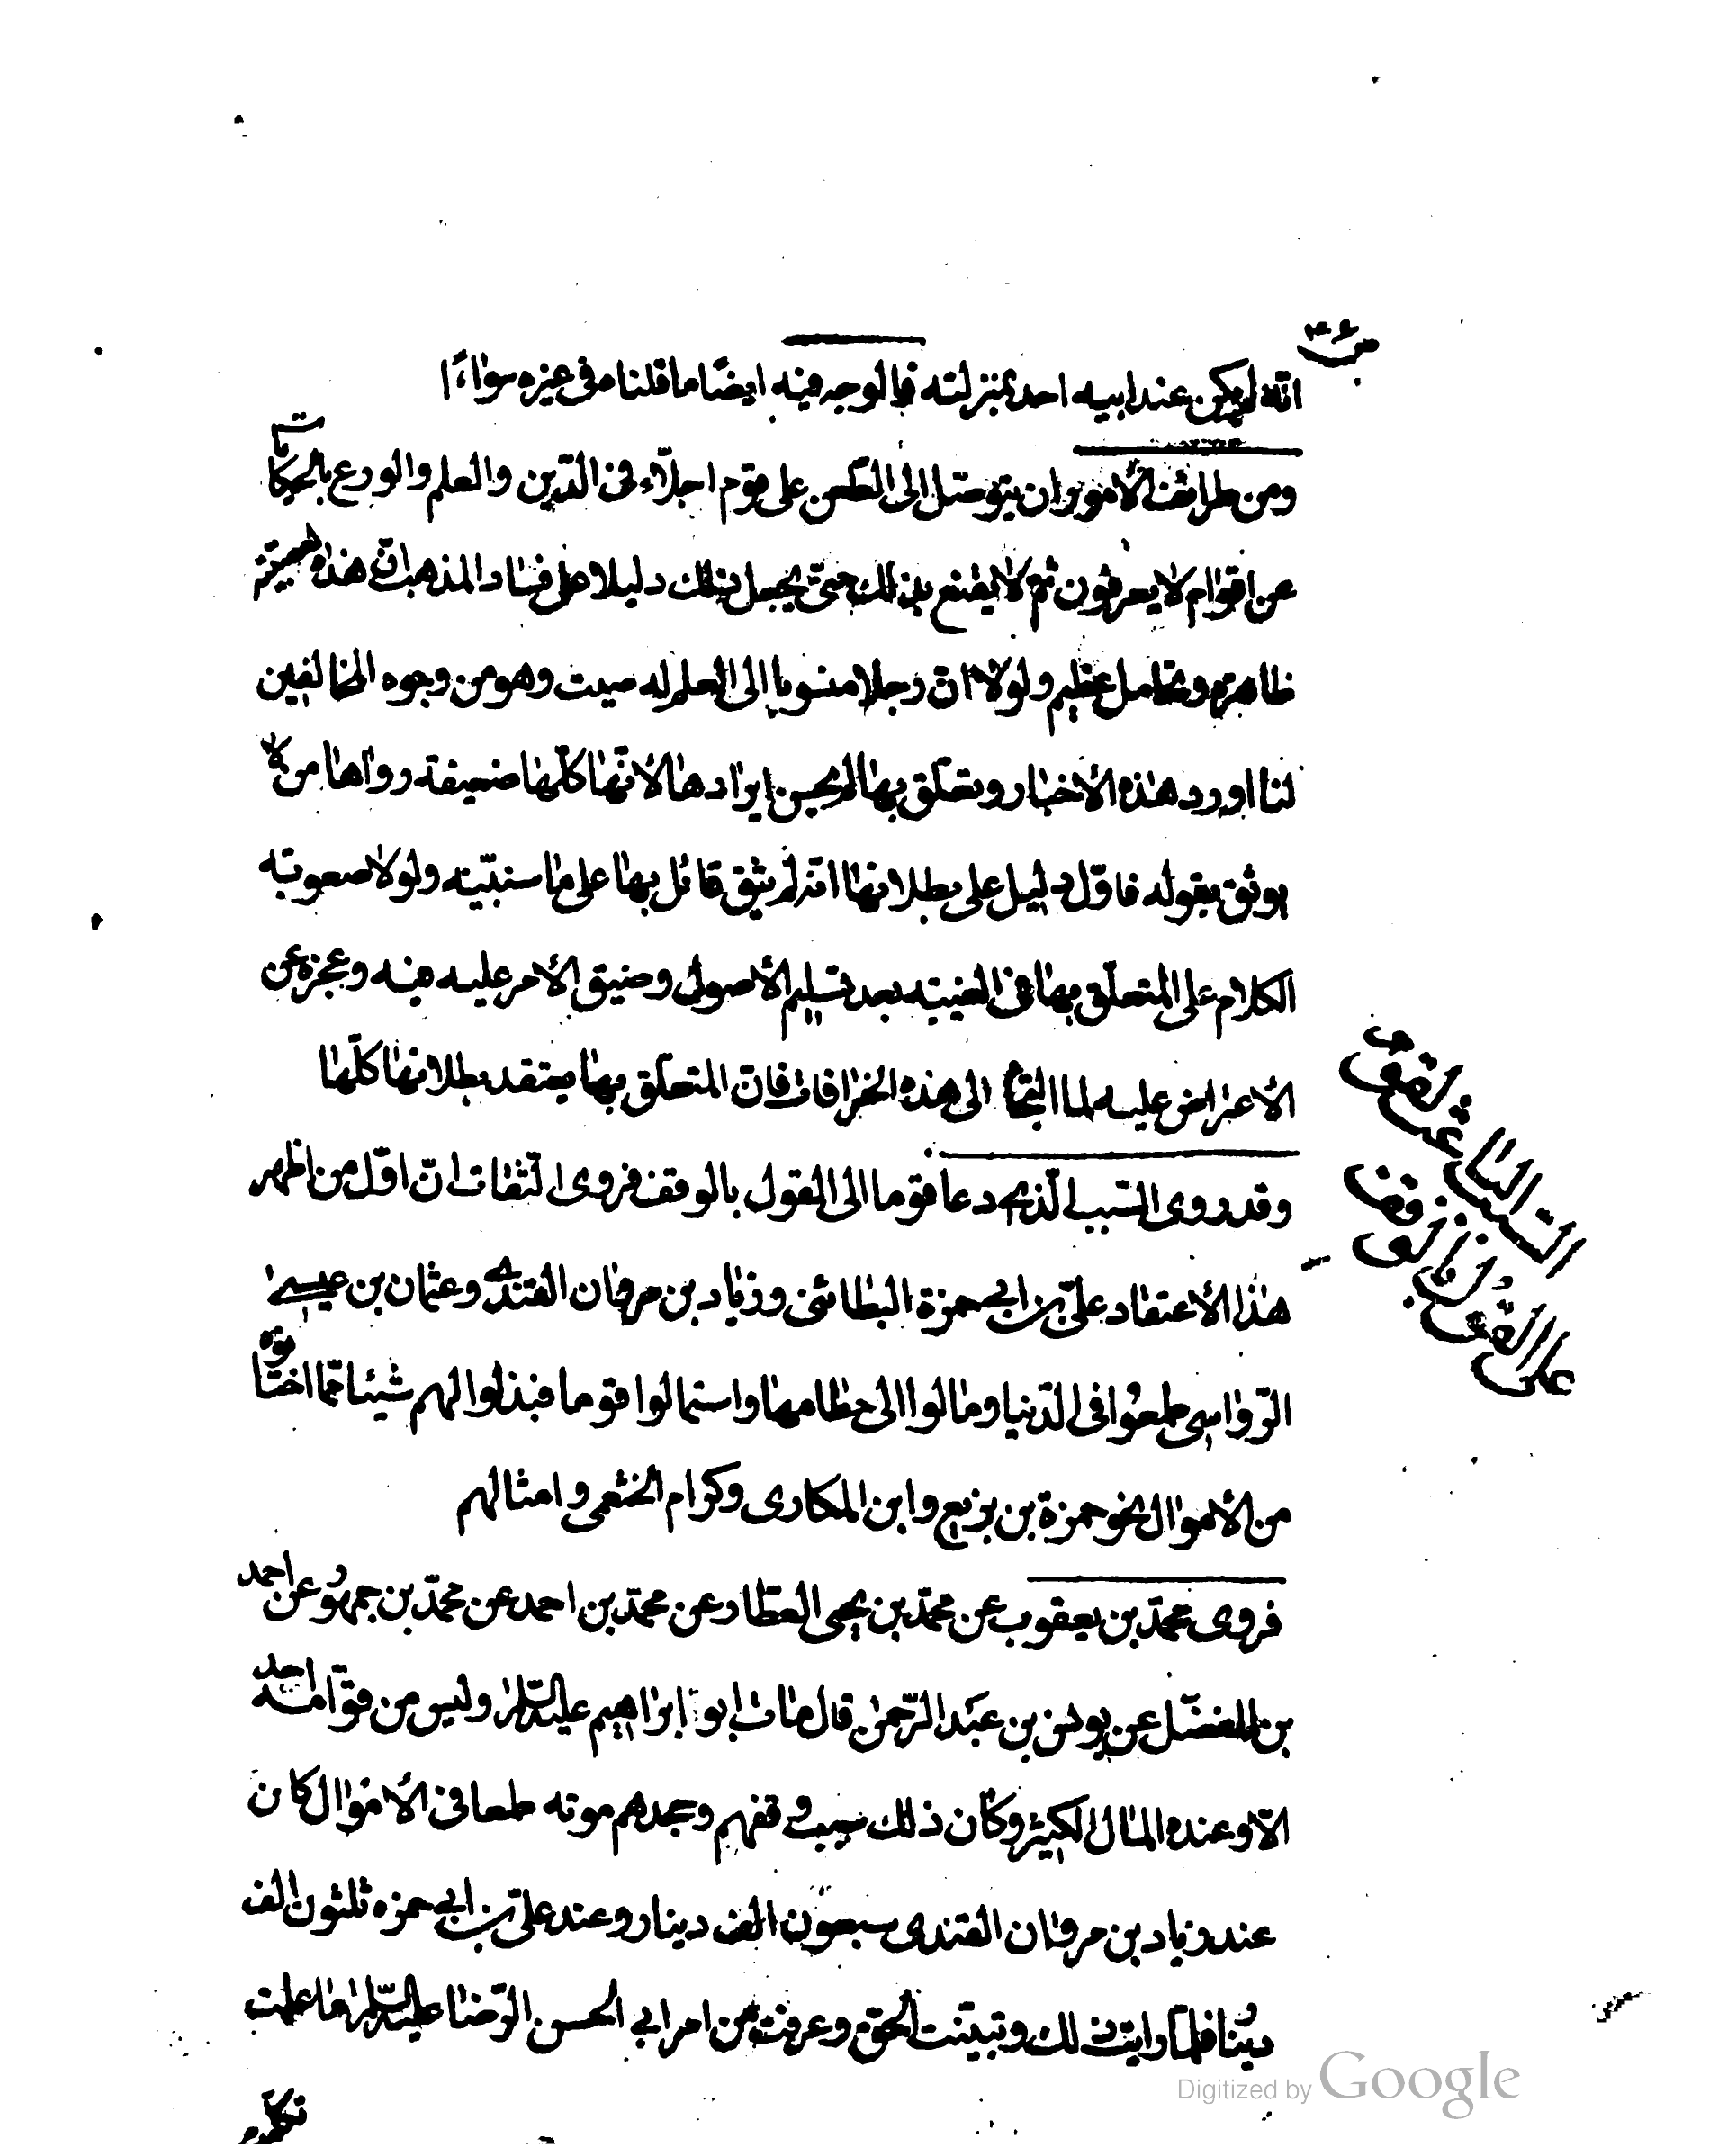 انّه لم يكن عند ابيه احد بمنزلته فالوجه فيه ايضًا ما قلناه فى غيره سواءً
ومن طرائف الأمور ان يتوصّل الى الطّعن على قوم اجلّاء فى الدّين والعلم والورع بالحكايات
عن اقوام لا يعرفون ثمّ لا يقنع بذلك حتى يجعل ذلك دليلا على فساد المذهب انّ هذه لعصبيّة
ظاهرة وتحامل عظيم ولولا انّ رجلا منسوبا الى العلم له صيت وهو من وجوه المخالفين
لنا اورد هذه الأخبار وتعلّق بها لم يحسن ايرادها لأنّها كلّها ضعيفة رواها من لا
يوثق بقوله فاوّل دليل على بطلانها انّه لم يثق قائل بها على ما سنبيّنه ولولا صعوبة
الكلام على المتعلّق بها فى الغيبة بعد تسليم الأصول وضيق الأمر عليه فيه وعجزه عن
الأعتراض عليه لما التجأ الى هذه الخرافات فانّ المتعلّق بها يعتقد بطلانها كلّها
وقد روى السّبب الّذى دعا قوما الى القول بالوقف فروى الثّقات انّ اوّل من اظهر
هذا الأعتقاد علىّ بن ابى حمزة البطائنى وزياد بن مروان القندى وعثمان بن عيسى
الرّواسى طمعوا فى الدّنيا ومالوا الى حطامها واستمالوا قوما فبذلوا لهم شيئا ممّا اختانوه
من الأموال نحو حمزة بن بزيع وابن المكارى وكرام الخثعمى وامثالهم
فروى محمّد بن يعقوب عن محمّد بن يحيى العطّار عن محمّد بن احمد عن محمّد بن جمهور عن احمد
بن المفضّل عن يونس بن عبد الرّحمن قال مات ابو ابراهيم عليه السّلم وليس من قوّامه احد
الّا وعنده المال الكثير وكان ذلك سبب وقفهم وجحدهم موته طمعا فى الأموال كان
عند زياد بن مروان القندى سبعون الف دينار وعند علىّ بن ابى حمزه ثلثون الف
دينار فلمّا رايت ذلك وتبيّنت الحقّ وعرفت من امر ابى الحسن الرّضا عليه السّلم ما علمت
السبب الباعث لقوم
على القول بالوقف
Digitized by Google